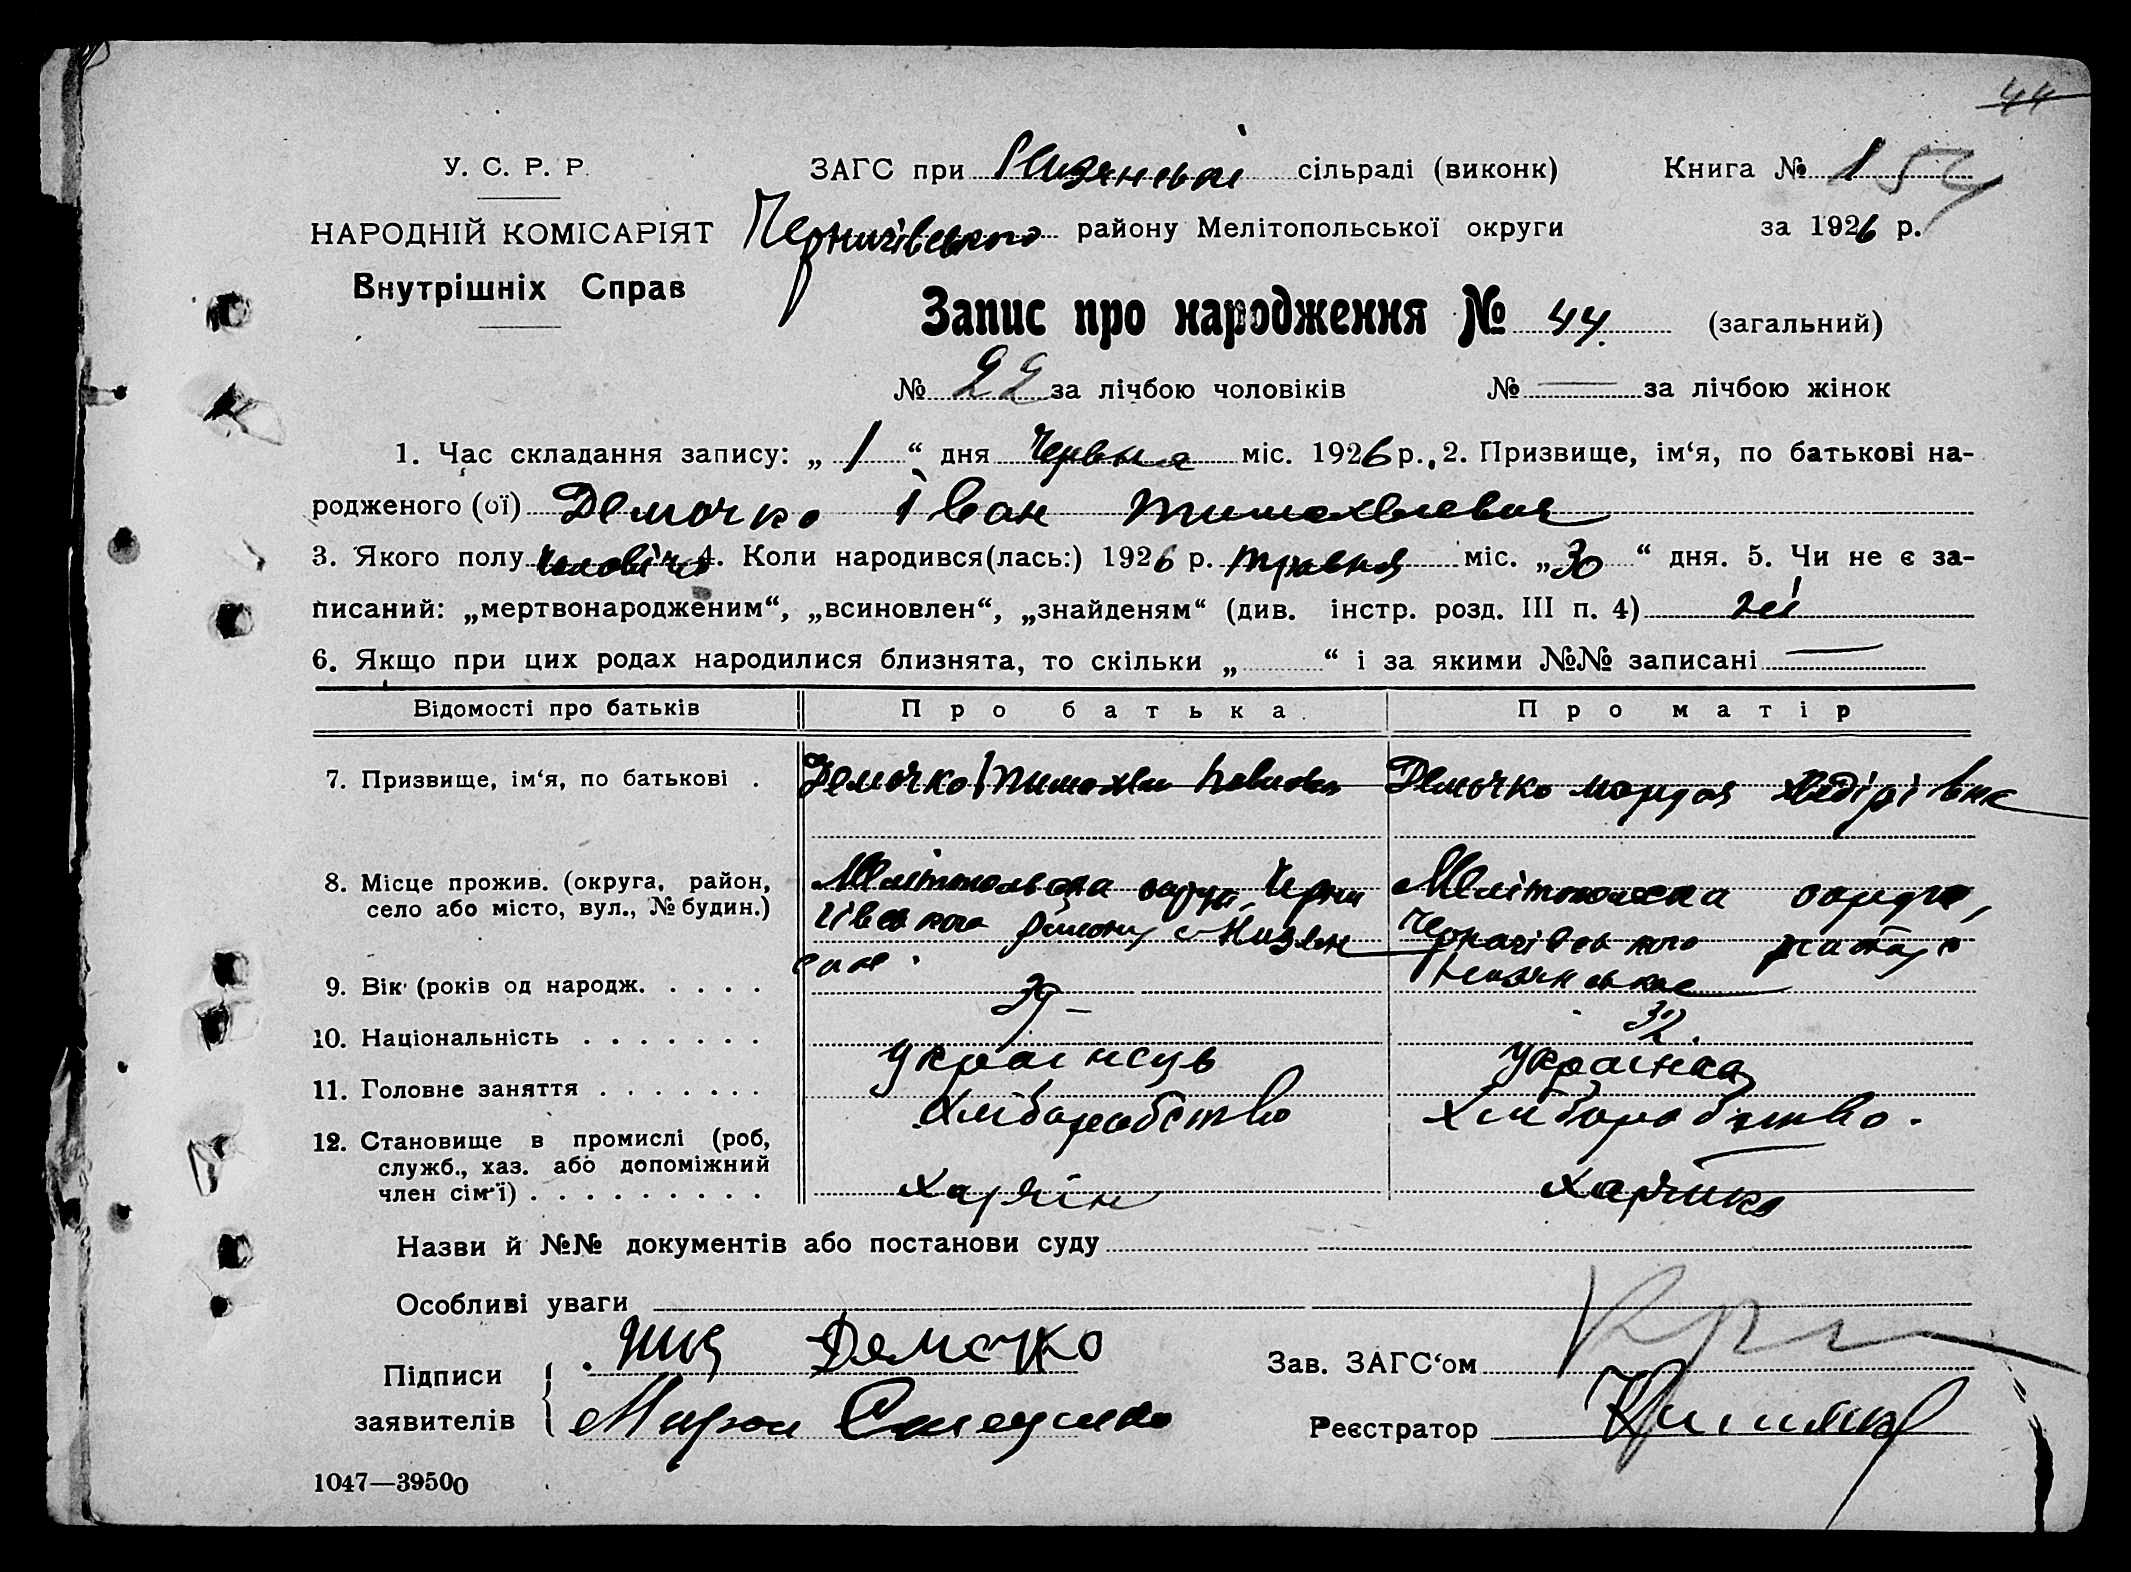 44
У. С. Р. Р.
ЗАГС при Низянській сільраді (виконк)
Книга № 1 54
НАРОДНІЙ КОМІСАРІЯТ
Чернигівського району Мелітопольської округи
за 1926 р.
Внутрішніх Справ
Запис про народження № 44. (загальний)
№ 22 за лічбою чоловіків № — за лічбою жінок
1. Час складання запису: „ 1 “ дня Червня міс. 1926 р., 2. Призвище, ім‘я, по батькові на-
родженого (ої) Демочко Іван
3. Якого полу 4. Коли народився(лась:) 1926 р. травня міс. „30“ дня. 5. Чи не є за-
писаний: „мертвонародженим“, „всиновлен“, „знайденям“ (див. інстр. розд. III п. 4) ні
6. Якщо при цих родах народилися близнята, то скільки „ “ і за якими №№ записані —
Відомості про батьків Про батька. Про матір
7. Призвище, ім‘я, по батькові . Демочко Демочко
8. Місце прожив. (округа, район,
село або місто, вул., № будин.)
Мелітопольська округа, Черни
гівського району
округа,
9. Вік (років од народж. . . . . 39 – 32.
10. Національність . . . . . . . українець українка
11. Головне заняття . . . . . . . хліборобство хліборобство.
12. Становище в промислі (роб,
служб., хаз. або допоміжний
член сім‘ї) . . . . . . . . . хазяїн хазяйка
Назви й №№ документів або постанови суду
Особливі уваги
Підписи
заявителів
Демочко
Мирон
Зав. ЗАГС‘ом
Реєстратор
1047—39500